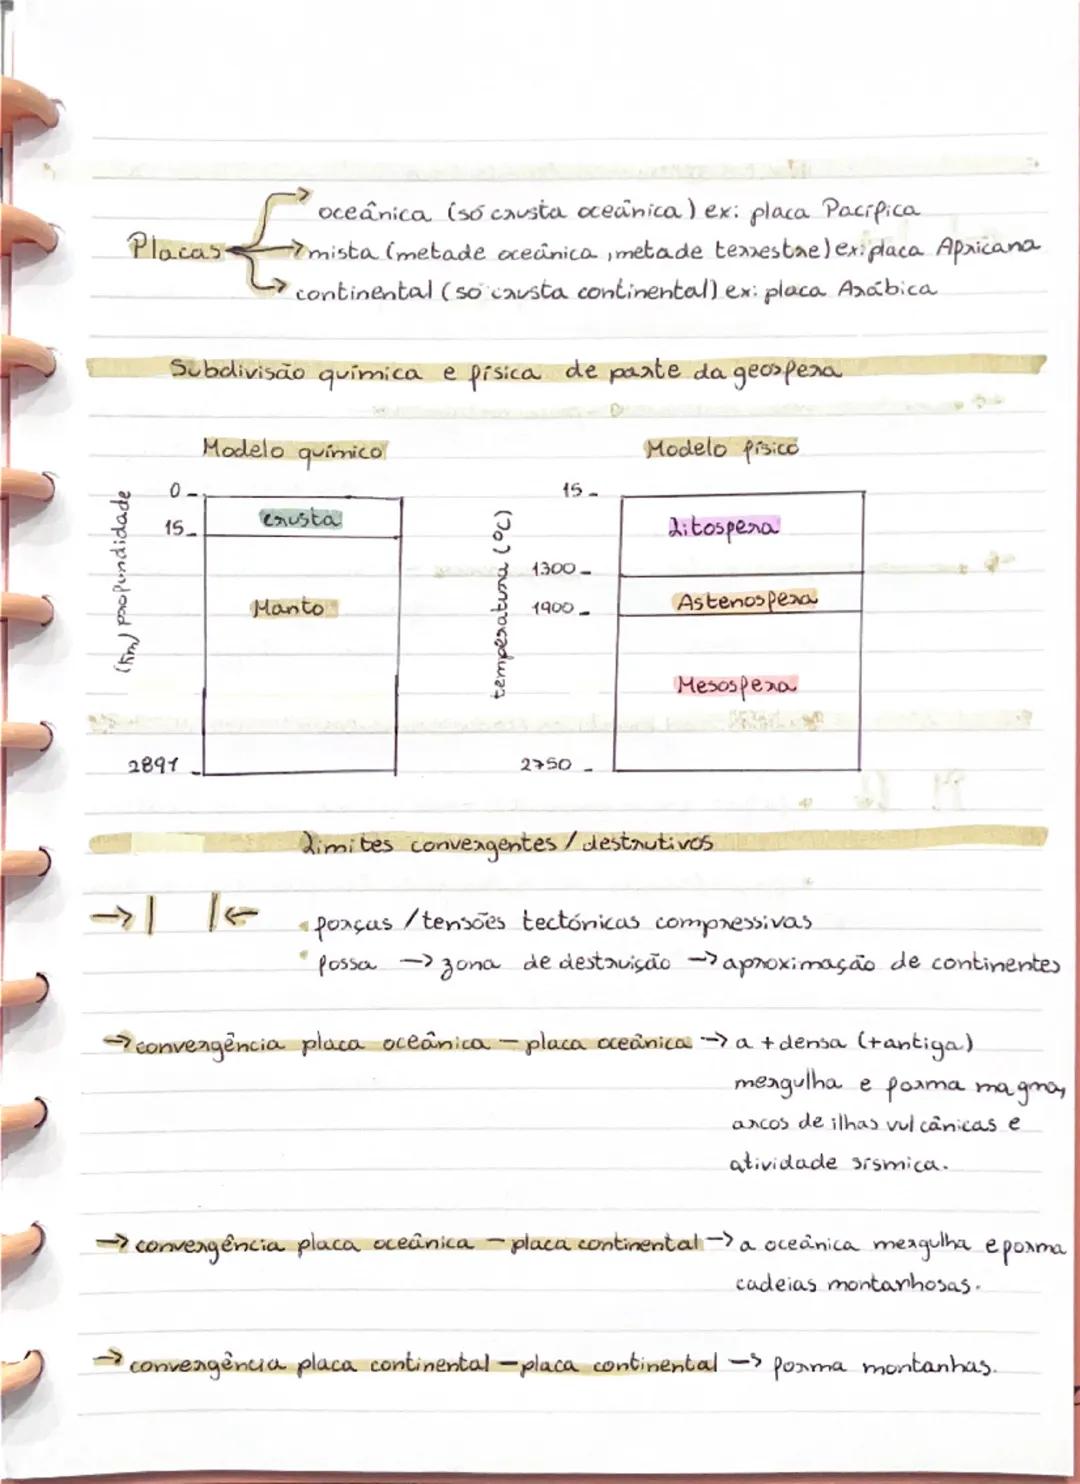 oceânica (só crusta oceânica) ex: placa Pacífica
Placas
mista (metade oceânica, metade terrestre) ex: placa Africana
continental (só crusta continental) ex: placa Arábica
Subdivisão química e física de parte da geosfera
Modelo químico
Modelo físico
(km) profundidade
0
15
2891
crusta
Manto
temperatura (°C)
15
1300
1900
2750
Litosfera
Astenosfera
Mesosfera
Limites convergentes / destrutivos
→| |←
• forças / tensões tectónicas compressivas
• fossa → zona de destruição → aproximação de continentes
→ convergência placa oceânica – placa oceânica → a + densa (+ antiga)
mergulha e forma magma,
arcos de ilhas vulcânicas e
atividade sísmica.
→ convergência placa oceânica – placa continental → a oceânica mergulha e forma
cadeias montanhosas.
→ convergência placa continental – placa continental → forma montanhas.